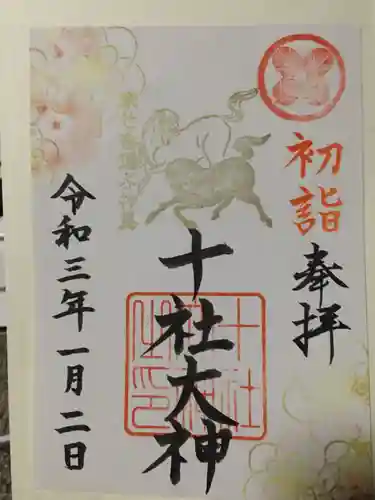 初詣
奉拝
十社大神
令和三年一月二日